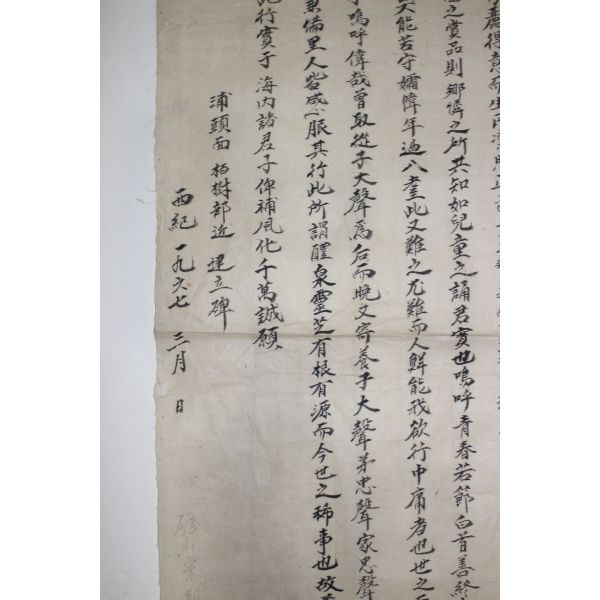 麗得意而生
之賞品則鄉憐之所共知如兒童之誦君實也嗚呼青春若節白首善終
天能若守孀幃年過八耋此又難之尤難而人鮮能我欲行中庸者也世之
嗚呼偉哉曾取從子大聲爲后而晚又寄養子大聲弟忠聲家忠聲
兼備里人皆咸心服其行此所謂醴泉靈芝有根有源而今世之稀事也故
記行實于海內諸君子俾補風化千萬誠願
浦頭面 栢樹部近 建立碑
西紀 一九六七 三月 日